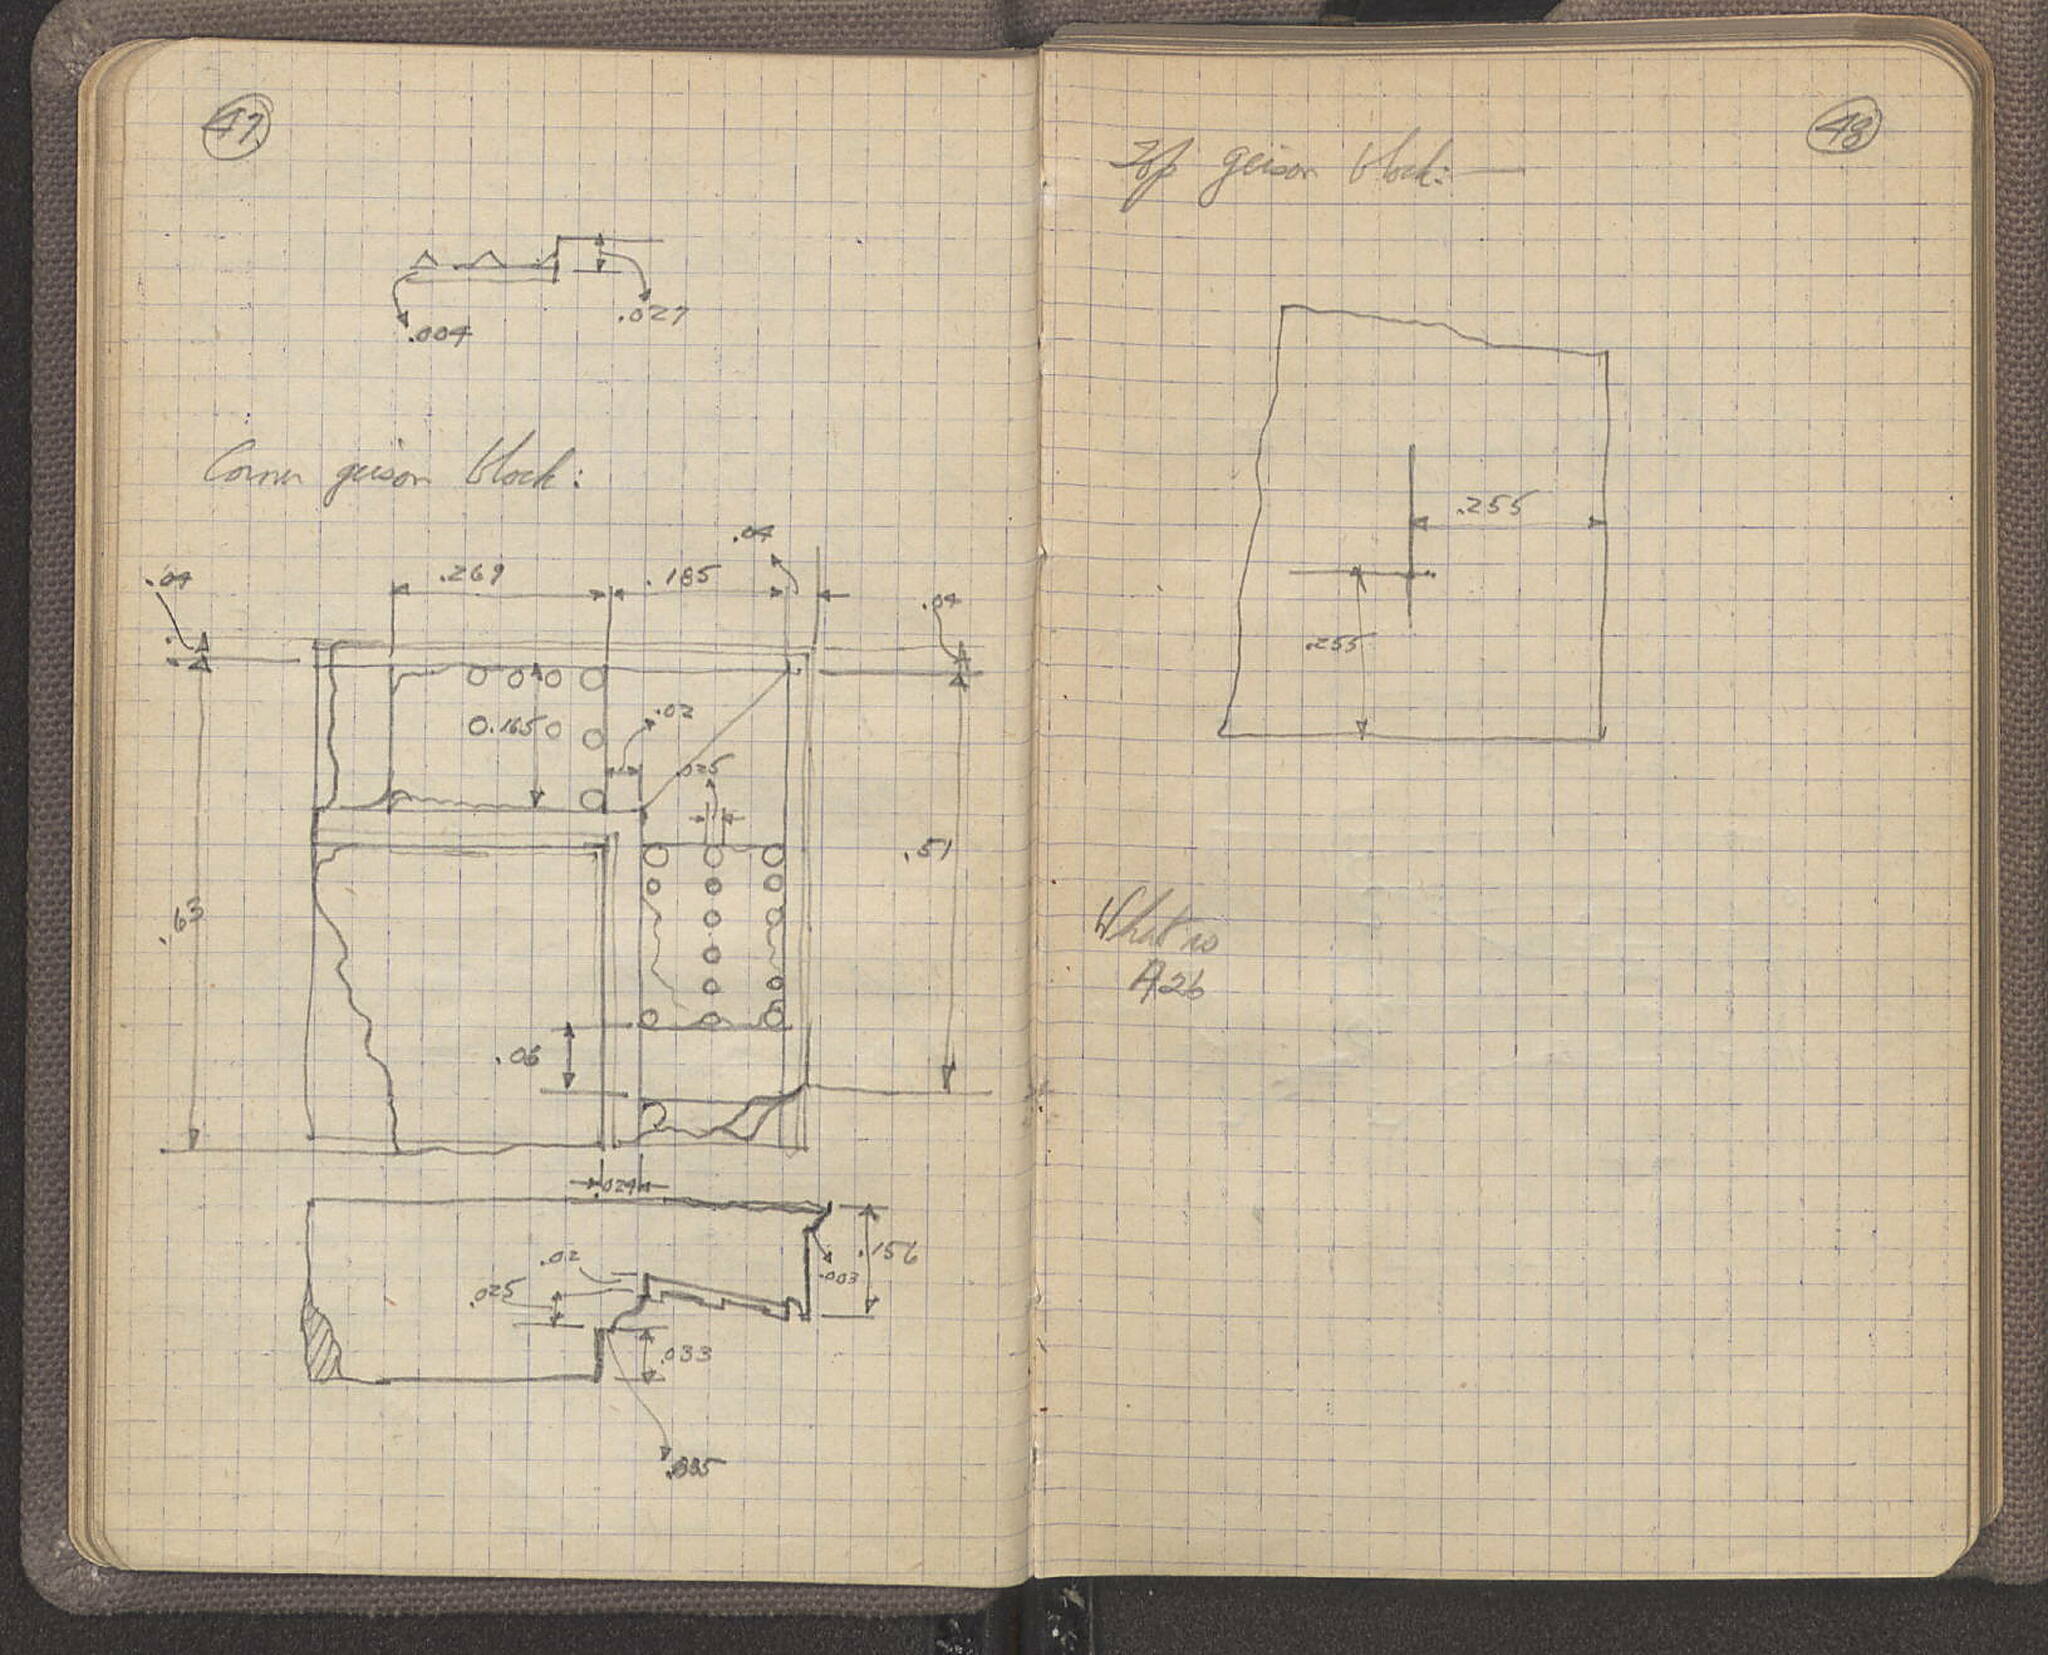 47
.027
.004
Corner geison block:
.04
.04
.269
.185
.04
.02
.165
.025
.51
.63
.06
.024
.02
.156
.003
.025
.033
48
Top geison block:—
.255
.255
What is
A26